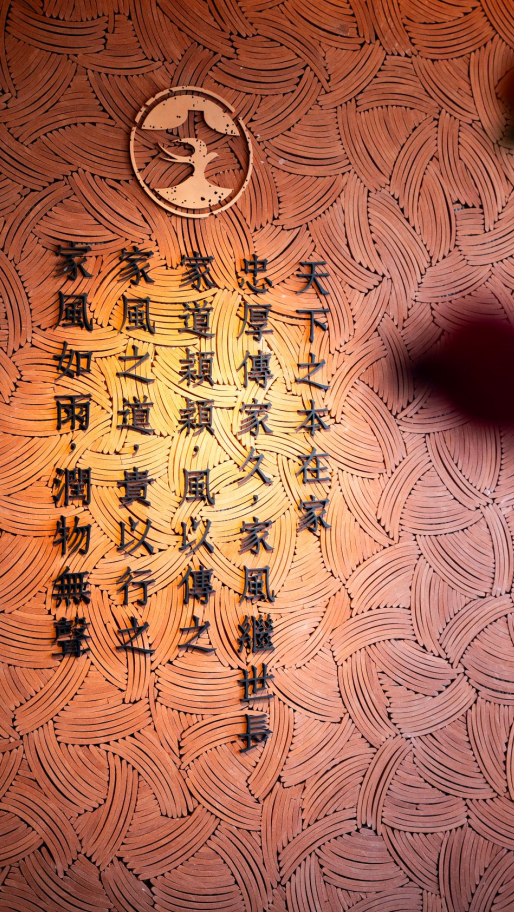 天下之本在家
忠厚傳家久，家風繼世長
家道穎穎，風以傳之
家風之道，貴以行之
家風如雨，潤物無聲